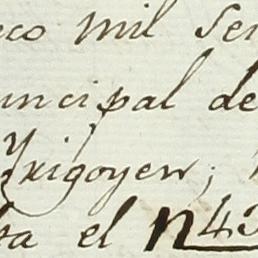 eco mil Sei
incipal de
Yrigoyen;
ta el n43